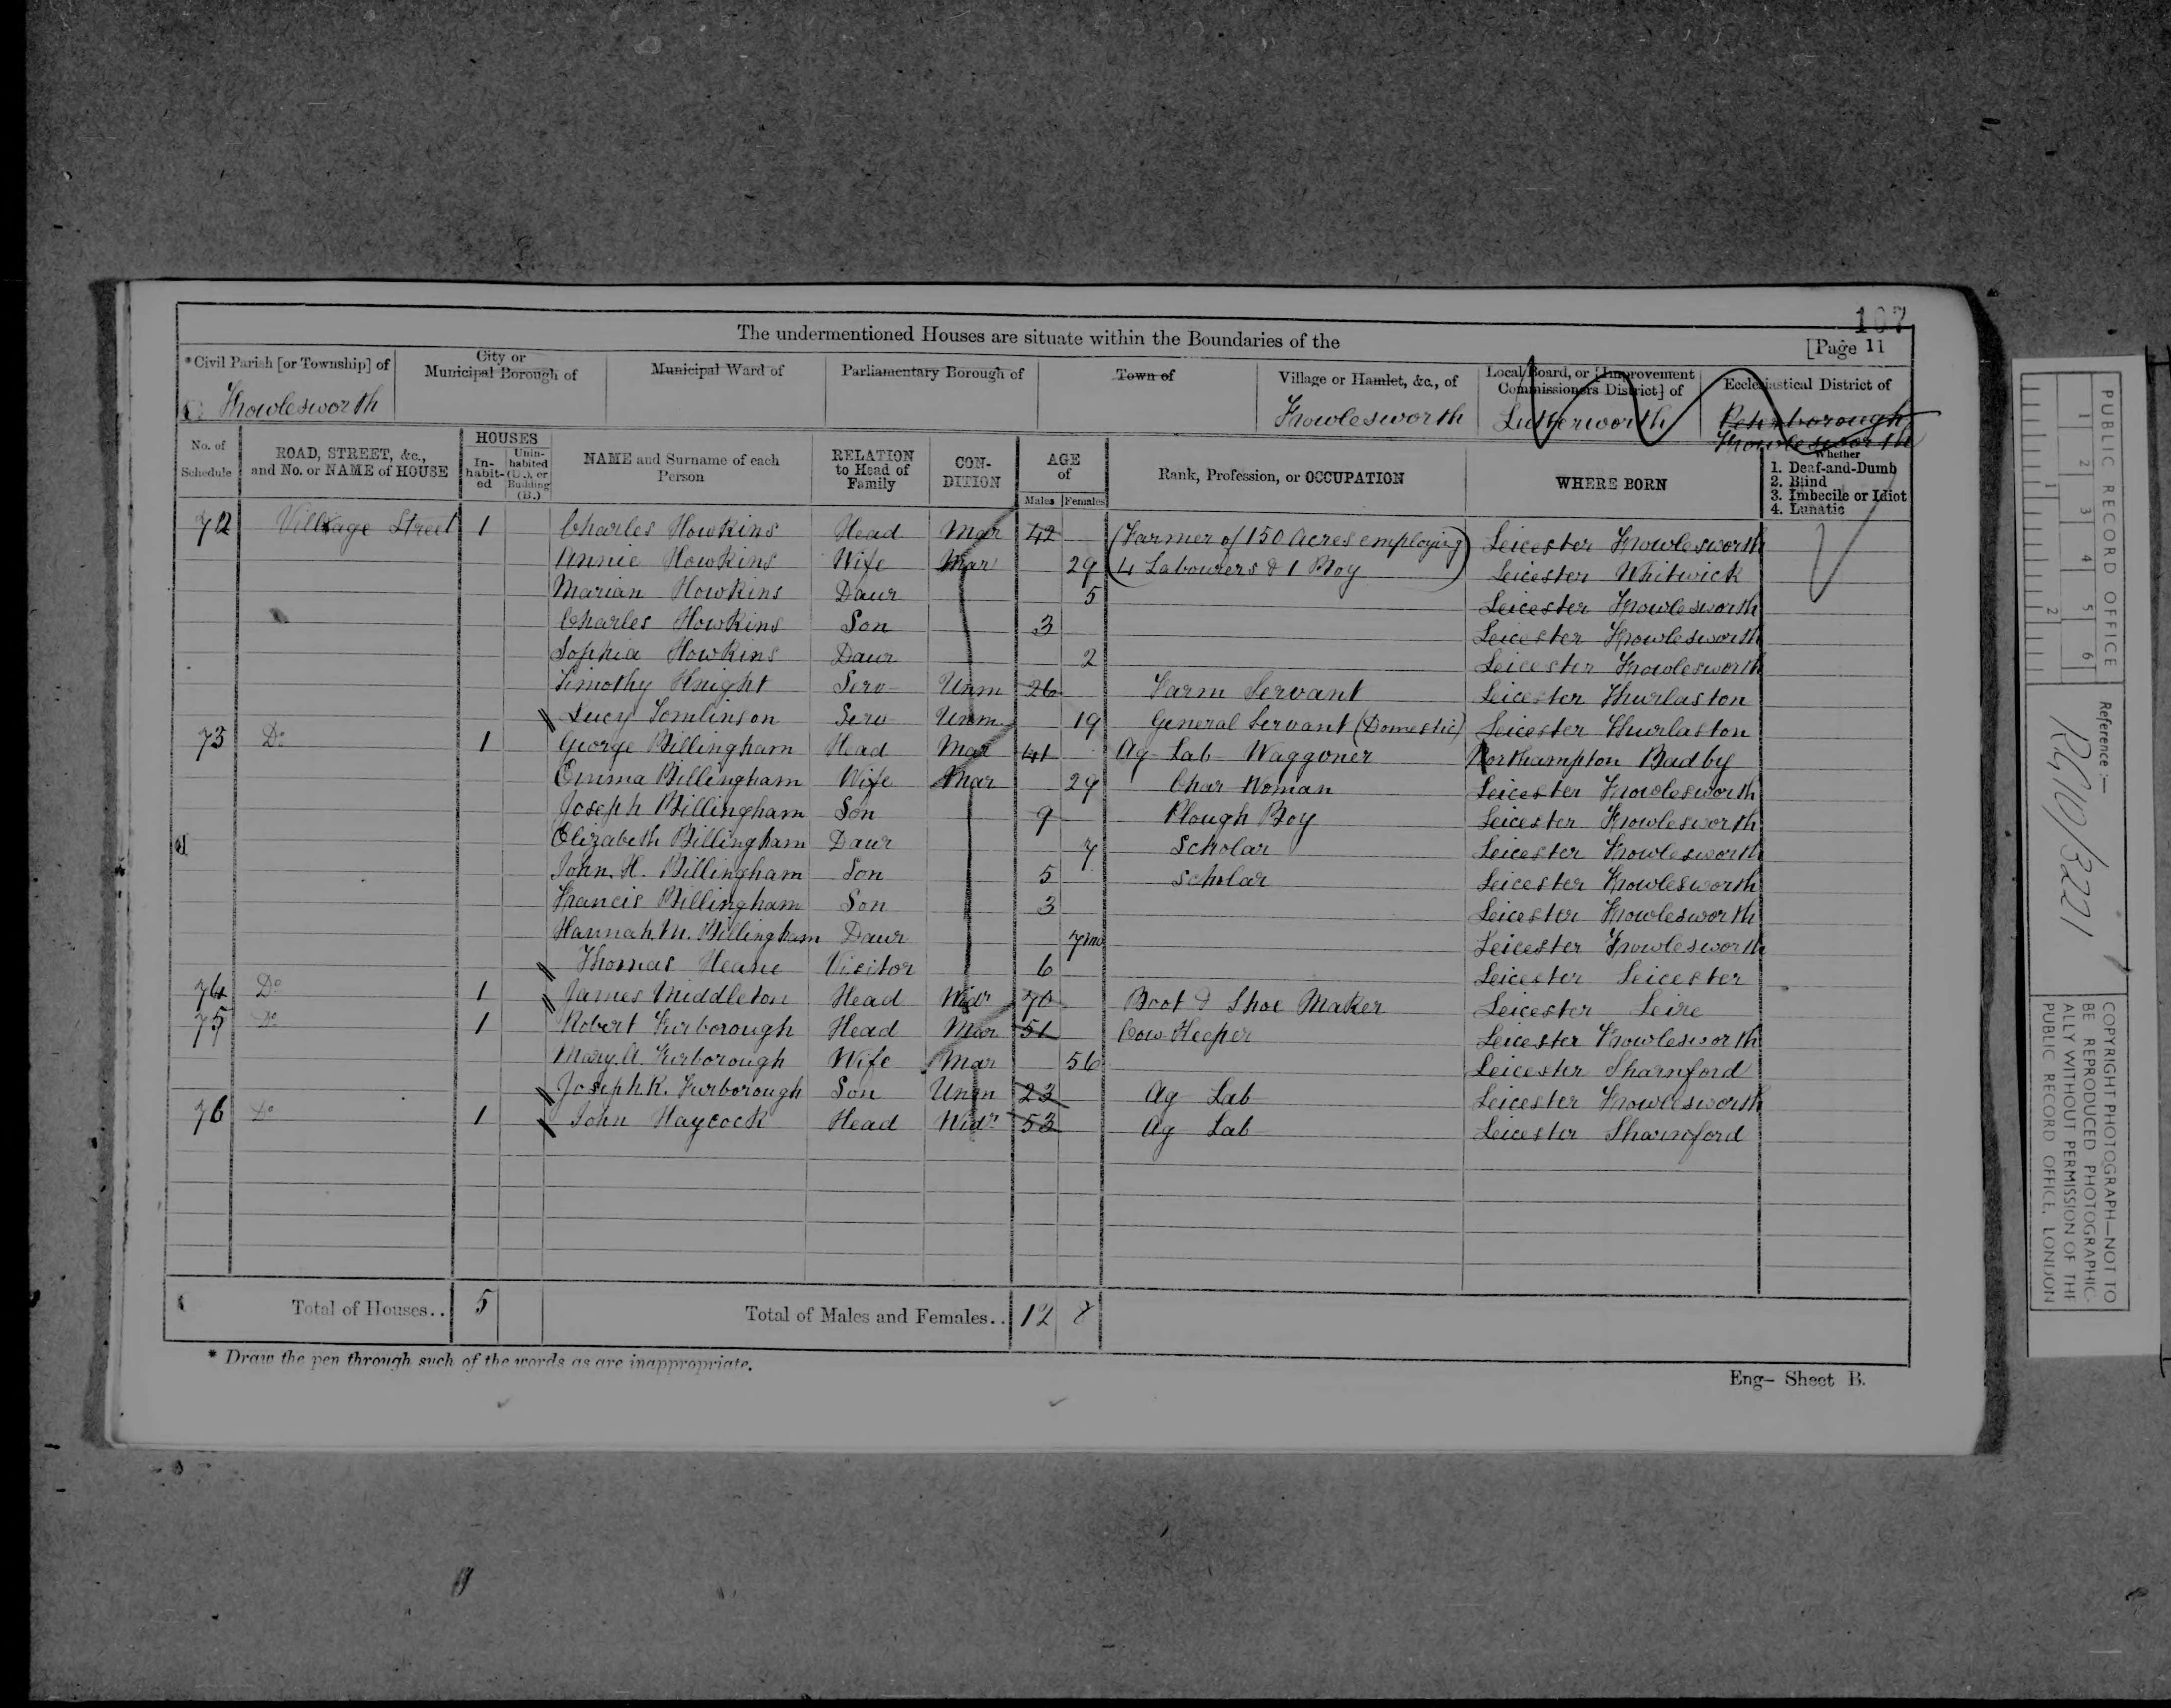 107
The undermentioned Houses are situate within the Boundaries of the
[Page 11
*Civil Parish [or Township] of
City or Municipal Borough of
Municipal Ward of
Parliamentary Borough of
Town of
Village or Hamlet, &c., of
Local Board, or [Improvement Commissioners District] of
Ecclesiastical District of
Frowlesworth
Frowlesworth
Lutterworth
Peterborough
Frowlesworth
No. of Schedule
ROAD, STREET, &c., and No. or NAME of HOUSE
HOUSES
In-habit-ed
Unin-habited (U.), or Building (B.)
NAME and Surname of each Person
RELATION to Head of Family
CON-DITION
AGE of
Males
Females
Rank, Profession, or OCCUPATION
WHERE BORN
Whether
1. Deaf-and-Dumb
2. Blind
3. Imbecile or Idiot
4. Lunatic
72 Village Street 1 Charles Howkins Head Mar 42 (Farmer of 150 Acres employing Leicester Frowlesworth
Annie Howkins Wife Mar 29 4 Labourers & 1 Boy) Leicester Whitwick
Marian Howkins Daur 5 Leicester Frowlesworth
Charles Howkins Son 3 Leicester Frowlesworth
Sophia Howkins Daur 2 Leicester Frowlesworth
Timothy Knight Serv Unm 26 Farm Servant Leicester Thurlaston
Lucy Tomlinson Serv Unm 19 General Servant (Domestic) Leicester Thurlaston
73 Do 1 George Billingham Head Mar 41 Ag Lab Waggoner Northampton Badby
Emma Billingham Wife Mar 29 Char Woman Leicester Frowlesworth
Joseph Billingham Son 9 Plough Boy Leicester Frowlesworth
Elizabeth Billingham Daur 7 Scholar Leicester Frowlesworth
John. H. Billingham Son 5 Scholar Leicester Frowlesworth
Francis Billingham Son 3 Leicester Frowlesworth
Hannah. M. Billingham Daur 7mo Leicester Frowlesworth
Thomas Heane Visitor 6 Leicester Leicester
74 Do 1 James Middleton Head Widr 70 Boot & Shoe Maker Leicester Leire
75 Do 1 Robert Furborough Head Mar 51 Cow Keeper Leicester Frowlesworth
Mary. A. Furborough Wife Mar 56 Leicester Sharnford
Joseph. R. Furborough Son Unm 23 Ag Lab Leicester Frowlesworth
76 Do 1 John Haycock Head Widr 53 Ag Lab Leicester Sharnford
Total of Houses.. 5 Total of Males and Females.. 12 8
* Draw the pen through such of the words as are inappropriate.
Eng- Sheet B.
PUBLIC RECORD OFFICE
1 2 3 4 5 6
1 2
Reference :-
RG 10/3221
COPYRIGHT PHOTOGRAPH—NOT TO
BE REPRODUCED PHOTOGRAPHIC-
ALLY WITHOUT PERMISSION OF THE
PUBLIC RECORD OFFICE, LONDON